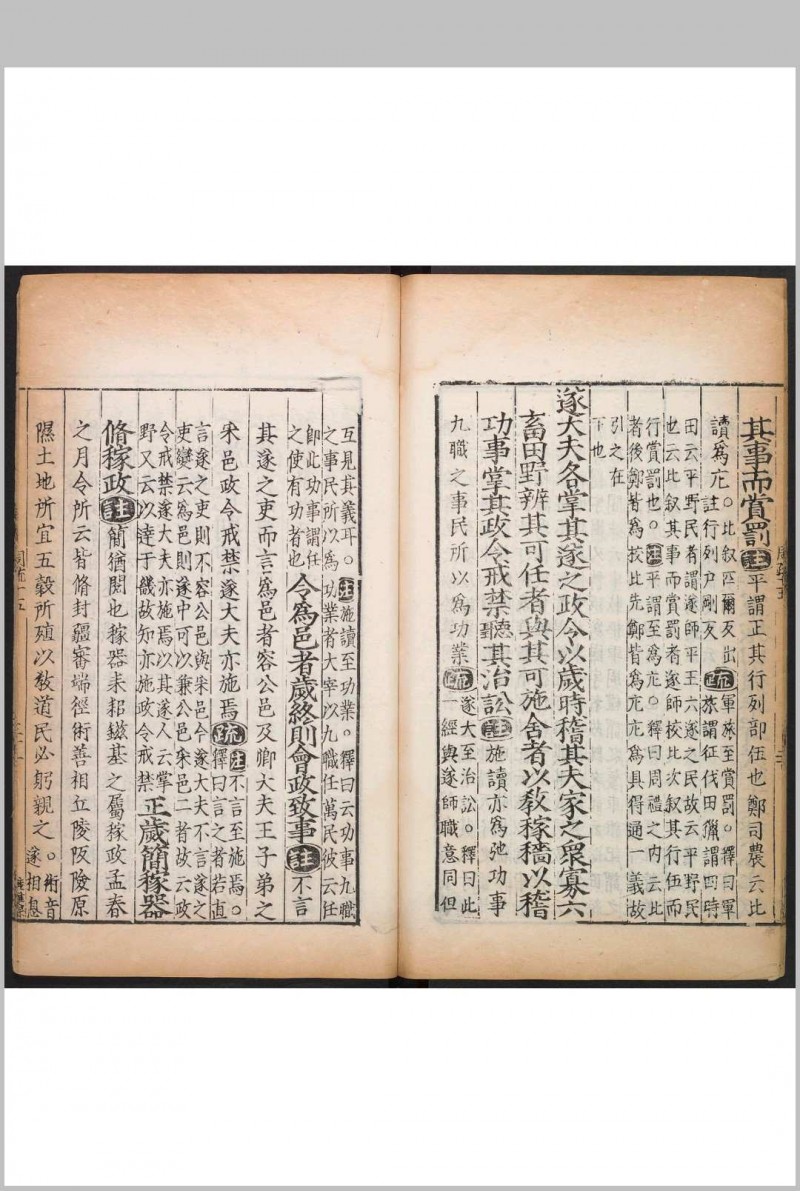 其事而賞罰註平謂正其行列部伍也鄭司農云比
讀爲庀。比叙匹爾反出
註行列戶剛反
疏軍旅至賞罰。釋曰軍
旅謂征伐田獵謂四時
田云平野民者謂遂師平王六遂之民故云平野民
也云比叙其事而賞罰者遂師校比次叙其行伍而
行賞罰也。註平謂至爲庀。釋曰周禮之内云比
者後鄭皆爲校比先鄭皆爲庀庀爲具得通一義故
引之在
下也
遂大夫各掌其遂之政令以歲時稽其夫家之衆寡六
畜田野辨其可任者與其可施舍者以教稼穡以稽
功事掌其政令戒禁聽其治訟註施讀亦爲弛功事
九職之事民所以爲功業疏遂大至治訟。釋曰此
一經與遂師職意同但
互見其義耳。註施讀至功業。釋曰云功事九職
之事民所以爲功業者大宰以九職任萬民彼云任
即此功事謂任
之使有功者也
令爲邑者歲終則會政致事註不言
其遂之吏而言爲邑者容公邑及卿大夫王子弟之
采邑政令戒禁遂大夫亦施焉疏註不言至施焉。
釋曰言之者若直
言遂之吏則不容公邑與采邑今遂大夫不言遂之
吏變云爲邑則遂中可以兼公邑采邑二者故云政
令戒禁遂大夫亦施焉以其遂人云掌
野又云以達于畿故知亦施政令戒禁
正歲簡稼器
脩稼政註簡猶閱也稼器耒耜鎡基之屬稼政孟春
之月令所云皆脩封疆審端徑術善相丘陵阪險原
隰土地所宜五穀所殖以教道民必躬親之。術音
遂相息
周疏十五